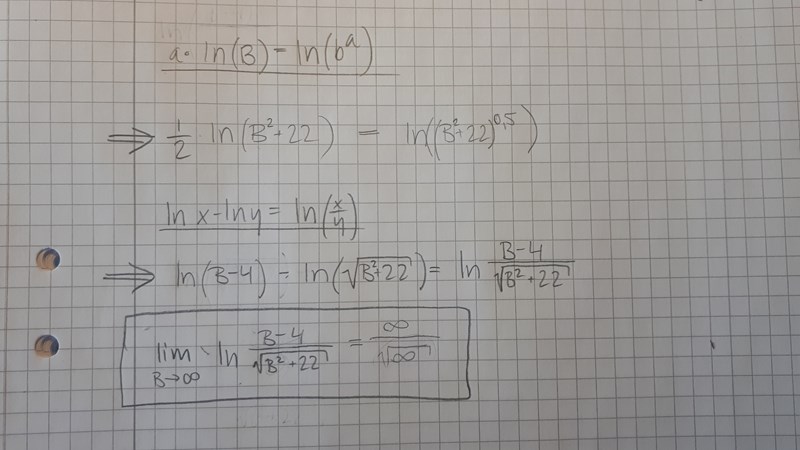 a· ln(B) - ln(b^a)
⇒ 1/2 ln(B²+22) = ln((B²+22)^0,5)
ln x - ln y = ln(x/y)
⇒ ln(B-4) - ln(√(B²+22)) = ln (B-4)/√(B²+22)
lim B→∞ ln (B-4)/√(B²+22) = ∞/√∞